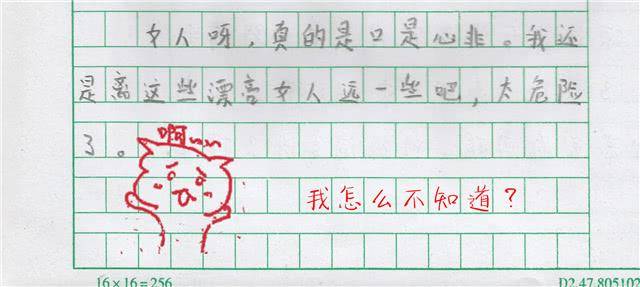 女人呀，真的是口是心非。我还
是离这些漂亮女人远一些吧，太危险
了。
啊~~
我怎么不知道？
16×16=256
D2.47.805102